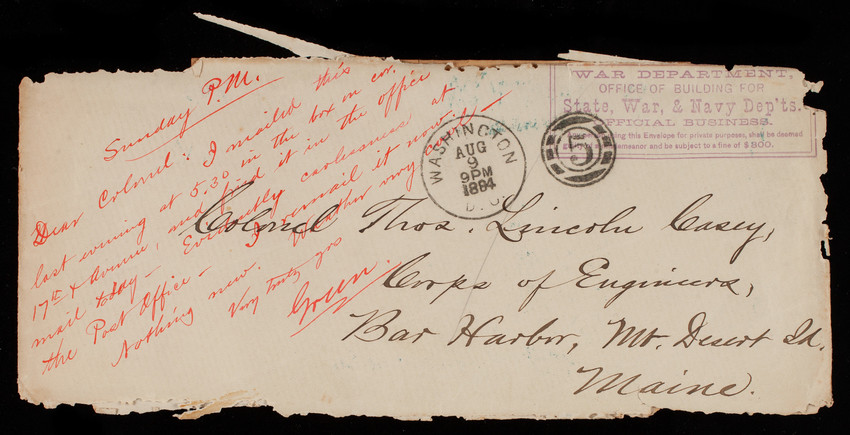 Sunday P.M.
Dear Colonel: I mailed this
last evening at 5.30 in the box on cor.
17th & Avenue, and find it in the office
mail today – Evidently carlessness at
the Post Office – I remail it now.
Nothing new. Weather very
Very truly yrs
Green.
WASHINGTON
AUG
9
9PM
1884
D.C.
5
WAR DEPARTMENT,
OFFICE OF BUILDING FOR
State, War, & Navy Dep'ts.
OFFICIAL BUSINESS.
using this Envelope for private purposes, shall be deemed
meanor and be subject to a fine of $300.
Colonel Thos. Lincoln Casey,
Corps of Engineers,
Bar Harbor, Mt. Desert Id.
Maine.